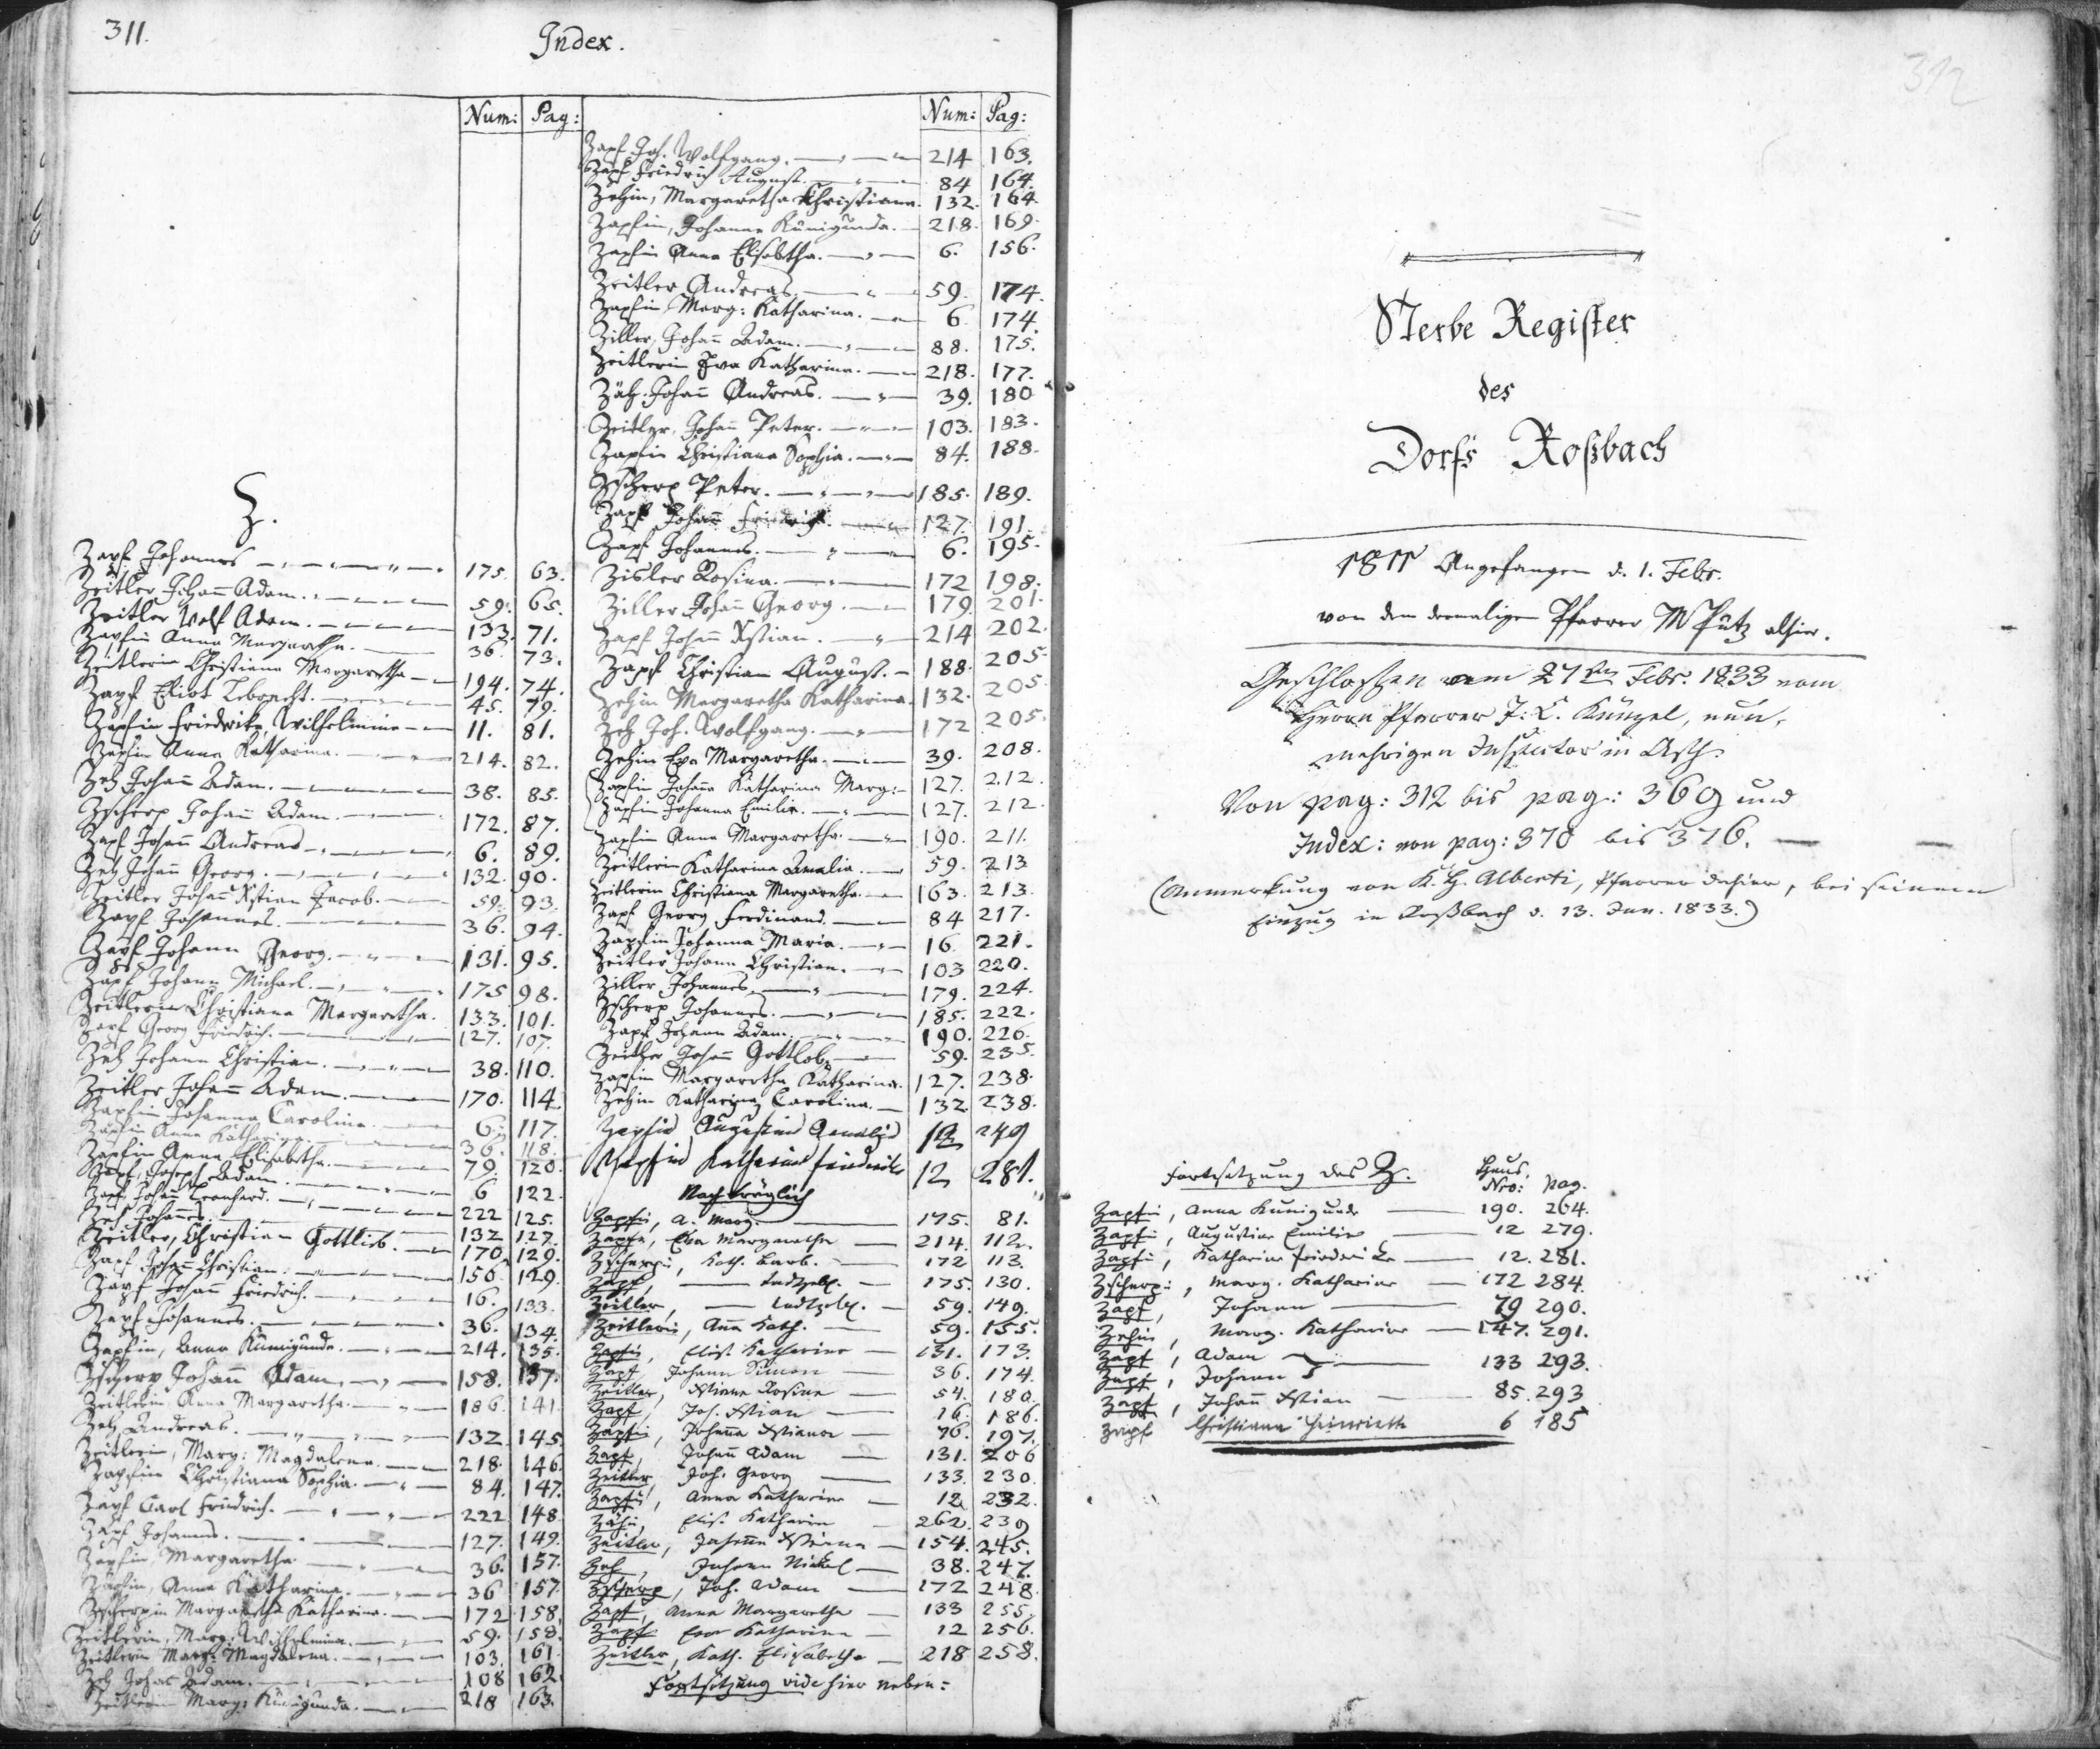 311.
Index.
Num: Pag:
Z.
Zapf Johannes 175. 63.
Zeitler Johann Adam. 59. 65.
Zeitler Wolf Adam. 133. 71.
Zapfin Anna Margaretha. 36. 73.
Zeitlerin Christiana Margaretha 194. 74.
Zapf Eliot Lebrecht. 45. 79.
Zapfin Friedrike Wilhelmine 11. 81.
Zapfin Anna Katharina. 214. 82.
Zeh Johann Adam. 38. 85.
Zscherp Johann Adam. 172. 87.
Zapf Johann Andreas 6. 89.
Zeh Johann Georg. 132. 90.
Zeitler Johann Xstian Jacob. 59. 93.
Zapf Johannes. 36. 94.
Zapf Johann Georg. 131. 95.
Zapf Johann Michael. 175 98.
Zeitlerin Christiana Margaretha. 133. 101.
Zapf Georg Friedrich. 127. 107.
Zeh Johann Christian. 38. 110.
Zeitler Johann Adam. 170. 114.
Zapfin Johanna Carolina. 6. 117.
Zapfin Anna Katharina. 36. 118.
Zapfin Anna Elisabetha. 79. 120.
Zapf, Joseph Adam. 6 122.
Zapf Johann Leonhard. 222 125.
Zeh Johannes. 132 127.
Zeitler, Christian Gottlieb. 170. 129.
Zapf Johann Christian. 150. 129.
Zapf Johann Friedrich. 16. 133.
Zapf Johannes. 36. 134.
Zapfin, Anna Kunigunda. 214. 135.
Zscherp Johann Adam. 158. 137.
Zeitlerin Anna Margaretha. 186. 141.
Zeh Andreas. 132. 145.
Zeitlerin, Marg: Magdalena. 218. 146.
Zapfin Christiana Sophia. 84. 147.
Zapf Carl Friedrich. 222 148.
Zapf Johannes. 127. 149.
Zapfin, Margaretha 36. 157.
Zapfin, Anna Katharina. 36 157.
Zscherpin Margaretha Katharina. 172 158.
Zeitlerin, Marg: Wilhelmina. 59. 158.
Zeitlerin Marg: Magdalena. 103. 161
Zeh Johas Adam. 108 162
Zeitlerin Marg: Kunigunda. 218 163.
Num: Pag:
Zapf Joh. Wolfgang. 214 163.
Zapf Friedrich August. 84 164.
Zehin, Margaretha Christiana. 132. 164.
Zapfin, Johanna Kunigunda. 218. 169.
Zapfin Anna Elisabtha. 6. 156.
Zeitler Andreas. 59. 174.
Zapfin Marg: Katharina. 6 174.
Ziller, Johann Adam. 88. 175.
Zeitlerin Eva Katharina. 218. 177.
Zäh. Johann Andreas. 39. 180
Zeitler, Johann Peter. 103. 183.
Zapfin Christiana Sophia. 84. 188.
Zscherp Peter. 185. 189.
Zapf Johann Friedrich. 127. 191.
Zapf Johannes. 6. 195.
Zisler Rosina. 172 198.
Ziller Johann Georg. 179. 201.
Zapf Johann Xstian. 214 202.
Zapf Christian August. 188. 205.
Zehin Margaretha Katharina. 132. 205.
Zeh Joh. Wolfgang. 172 205.
Zehin Eva Margaretha. 39. 208.
Zapfin Johanna Katharina Marg: 127. 212.
Zapfin Johanna Emilie. 127. 212.
Zapfin Anna Margaretha. 190. 211.
Zeitlerin Katharina Amalia. 59. 213
Zeitlerin Christiana Margaretha. 163. 213.
Zapf Georg Ferdinand. 84 217.
Zapfin Johanna Maria. 16. 221.
Zeitler Johann Christian. 103 220.
Ziller Johannes. 179. 224.
Zscherp Johannes. 185. 222.
Zapf Johann Adam. 190. 226.
Zeitler Johann Gottlob. 59. 235.
Zapfin Margaretha Katharina. 127. 238.
Zehin Katharina Carolina. 132. 238.
Zapfin Augustina 12 279
Zapfin Katharina Friedrike 12 281.
Nachträglich
Zapfin, A. Marg. 175. 81.
Zapfin, Eva Margaretha 214. 112.
Zscherpin, Kath. Barb. 172 113.
Zapf 175. 130.
Zeitler, 59. 149.
Zeitlerin, Ana Kath. 59. 155.
Zapfin, Elis. Katharine 131. 173.
Zapf, Johann Simon 36. 174.
Zeitler, Xtiane Rosine 54. 180.
Zapf, Joh. Xstian 16. 186.
Zapfin, Johanna Xstiana 76. 197.
Zapf, Johann Adam 131. 206
Zeitler, Joh. Georg 133. 230.
Zapfin, Anna Katharine 12. 232.
Zähin, Elis. Katharin 262. 239
Zeitler, Johanna Xtiana 154. 245.
Zeh, Johann Nickel 38. 247.
Zscherp, Joh. Adam 172 248.
Zapf, Anna Margaretha 133 255.
Zapf Eva Katharina 12 256.
Zeitler, Kath. Elisabetha 218 258.
Fortsetzung vide hier neben:
312
Sterbe Register
des
Dorfs Roßbach
1811 Angefangen d. 1. Febr.
von dem dermaligen Pfarrer M Putz alhier.
Geschlossen am 27ten Febr. 1833 vom
Herrn Pfarrer J. C. Künzel, nun,
mehrigen Inspector in Asch.
Von pag: 312 bis pag: 369 und
Index: von pag: 370 bis 376.
(Anmerkung von K. H. Alberti, Pfarrer dahier, bei seinem
Einzug in Roßbach d. 13. Jun. 1833.)
Fortsetzung des Z. Haus Nro: pag.
Zapfin, Anna Kunigunde 190. 264.
Zapfin, Augustine Emilie 12 279.
Zapfin, Katharine Friederike 12. 281.
Zscherpin, Marg. Katharine 172 284.
Zapf, Johann 79 290.
Zehin, Marg. Katharine 147. 291.
Zapf, Adam 133 293.
Zapf, Johann
Zapf, Johann Xstian 85. 293
Zapf Christiana Heinrieth 6 185